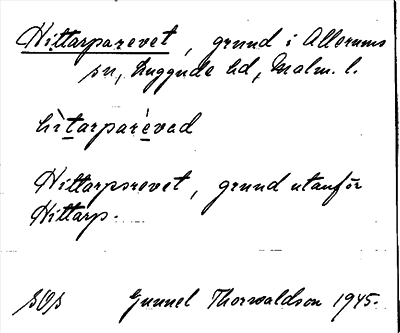 Hittarparevet, grund i Allerums
sn, Luggude hd, Malm. l.
hìtarparèvad
Hittarpsrevet, grund utanför
Hittarp.
sOs Gunnel Thorwaldson 1945.